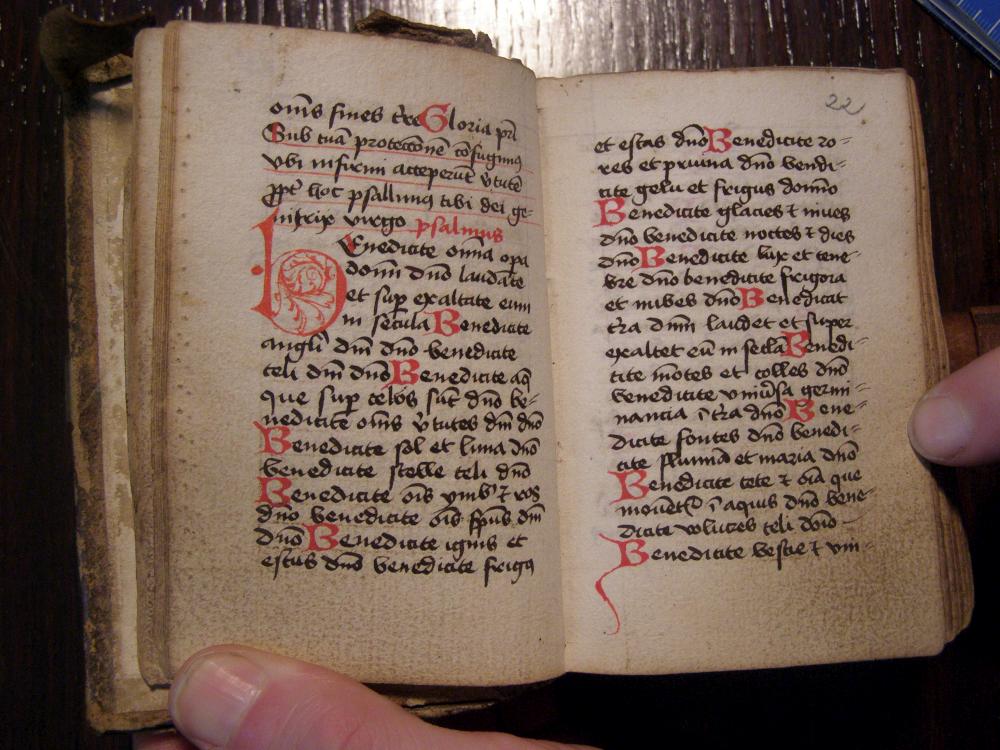 om̄s fines tr̄e Gloria pr̄i
Sub tuā protecc̄onē cōfugimꝯ
vbi infirmi acceperūt v̄tutē
ꝓpt̄ hoc psallimꝯ tibi dei ge-
nitrix virgo psalmus
Benedicite omīa opa
domī dn̄o laudate
et suꝑ exaltate eum
in secula Benedicite
angli dn̄i dn̄o benedicite
celi dn̄i dn̄o Benedicite aq̄
que suꝑ celos sūt dn̄o be-
nedicite om̄s v̄tutes dn̄i dn̄o
Benedicite sol et luna dn̄o
benedicite stelle celi dn̄o
Benedicite ōis ymbꝰ et ros
dn̄o benedicite ōis sp̄us dn̄i
dn̄o Benedicite ignis et
estus dn̄o benedicite frigꝯ
22
et estas dn̄o Benedicite ro-
res et pruina dn̄o bendi-
cite gelu et frigus domīo
Benedicite glacies ⁊ niues
dn̄o benedicite noctes ⁊ dies
dn̄o Benedicite lux et tene-
bre dn̄o benedicite frigora
et nubes dn̄o Benedicat
tr̄ra dn̄m laudet et super
exaltet eū in secl̄a Benedi-
cite mōtes et colles dn̄o
benedicite vniūsa germi-
nancia ī tr̄ra dn̄o Bene-
dicite fontes dn̄o benedi-
cite flumīa et maria dn̄o
Benedicite cete ⁊ ōia que
mouētᷣ ī aquis dn̄o bene-
dicite volucres celi dn̄o
Benedicite bestie ⁊ vni-